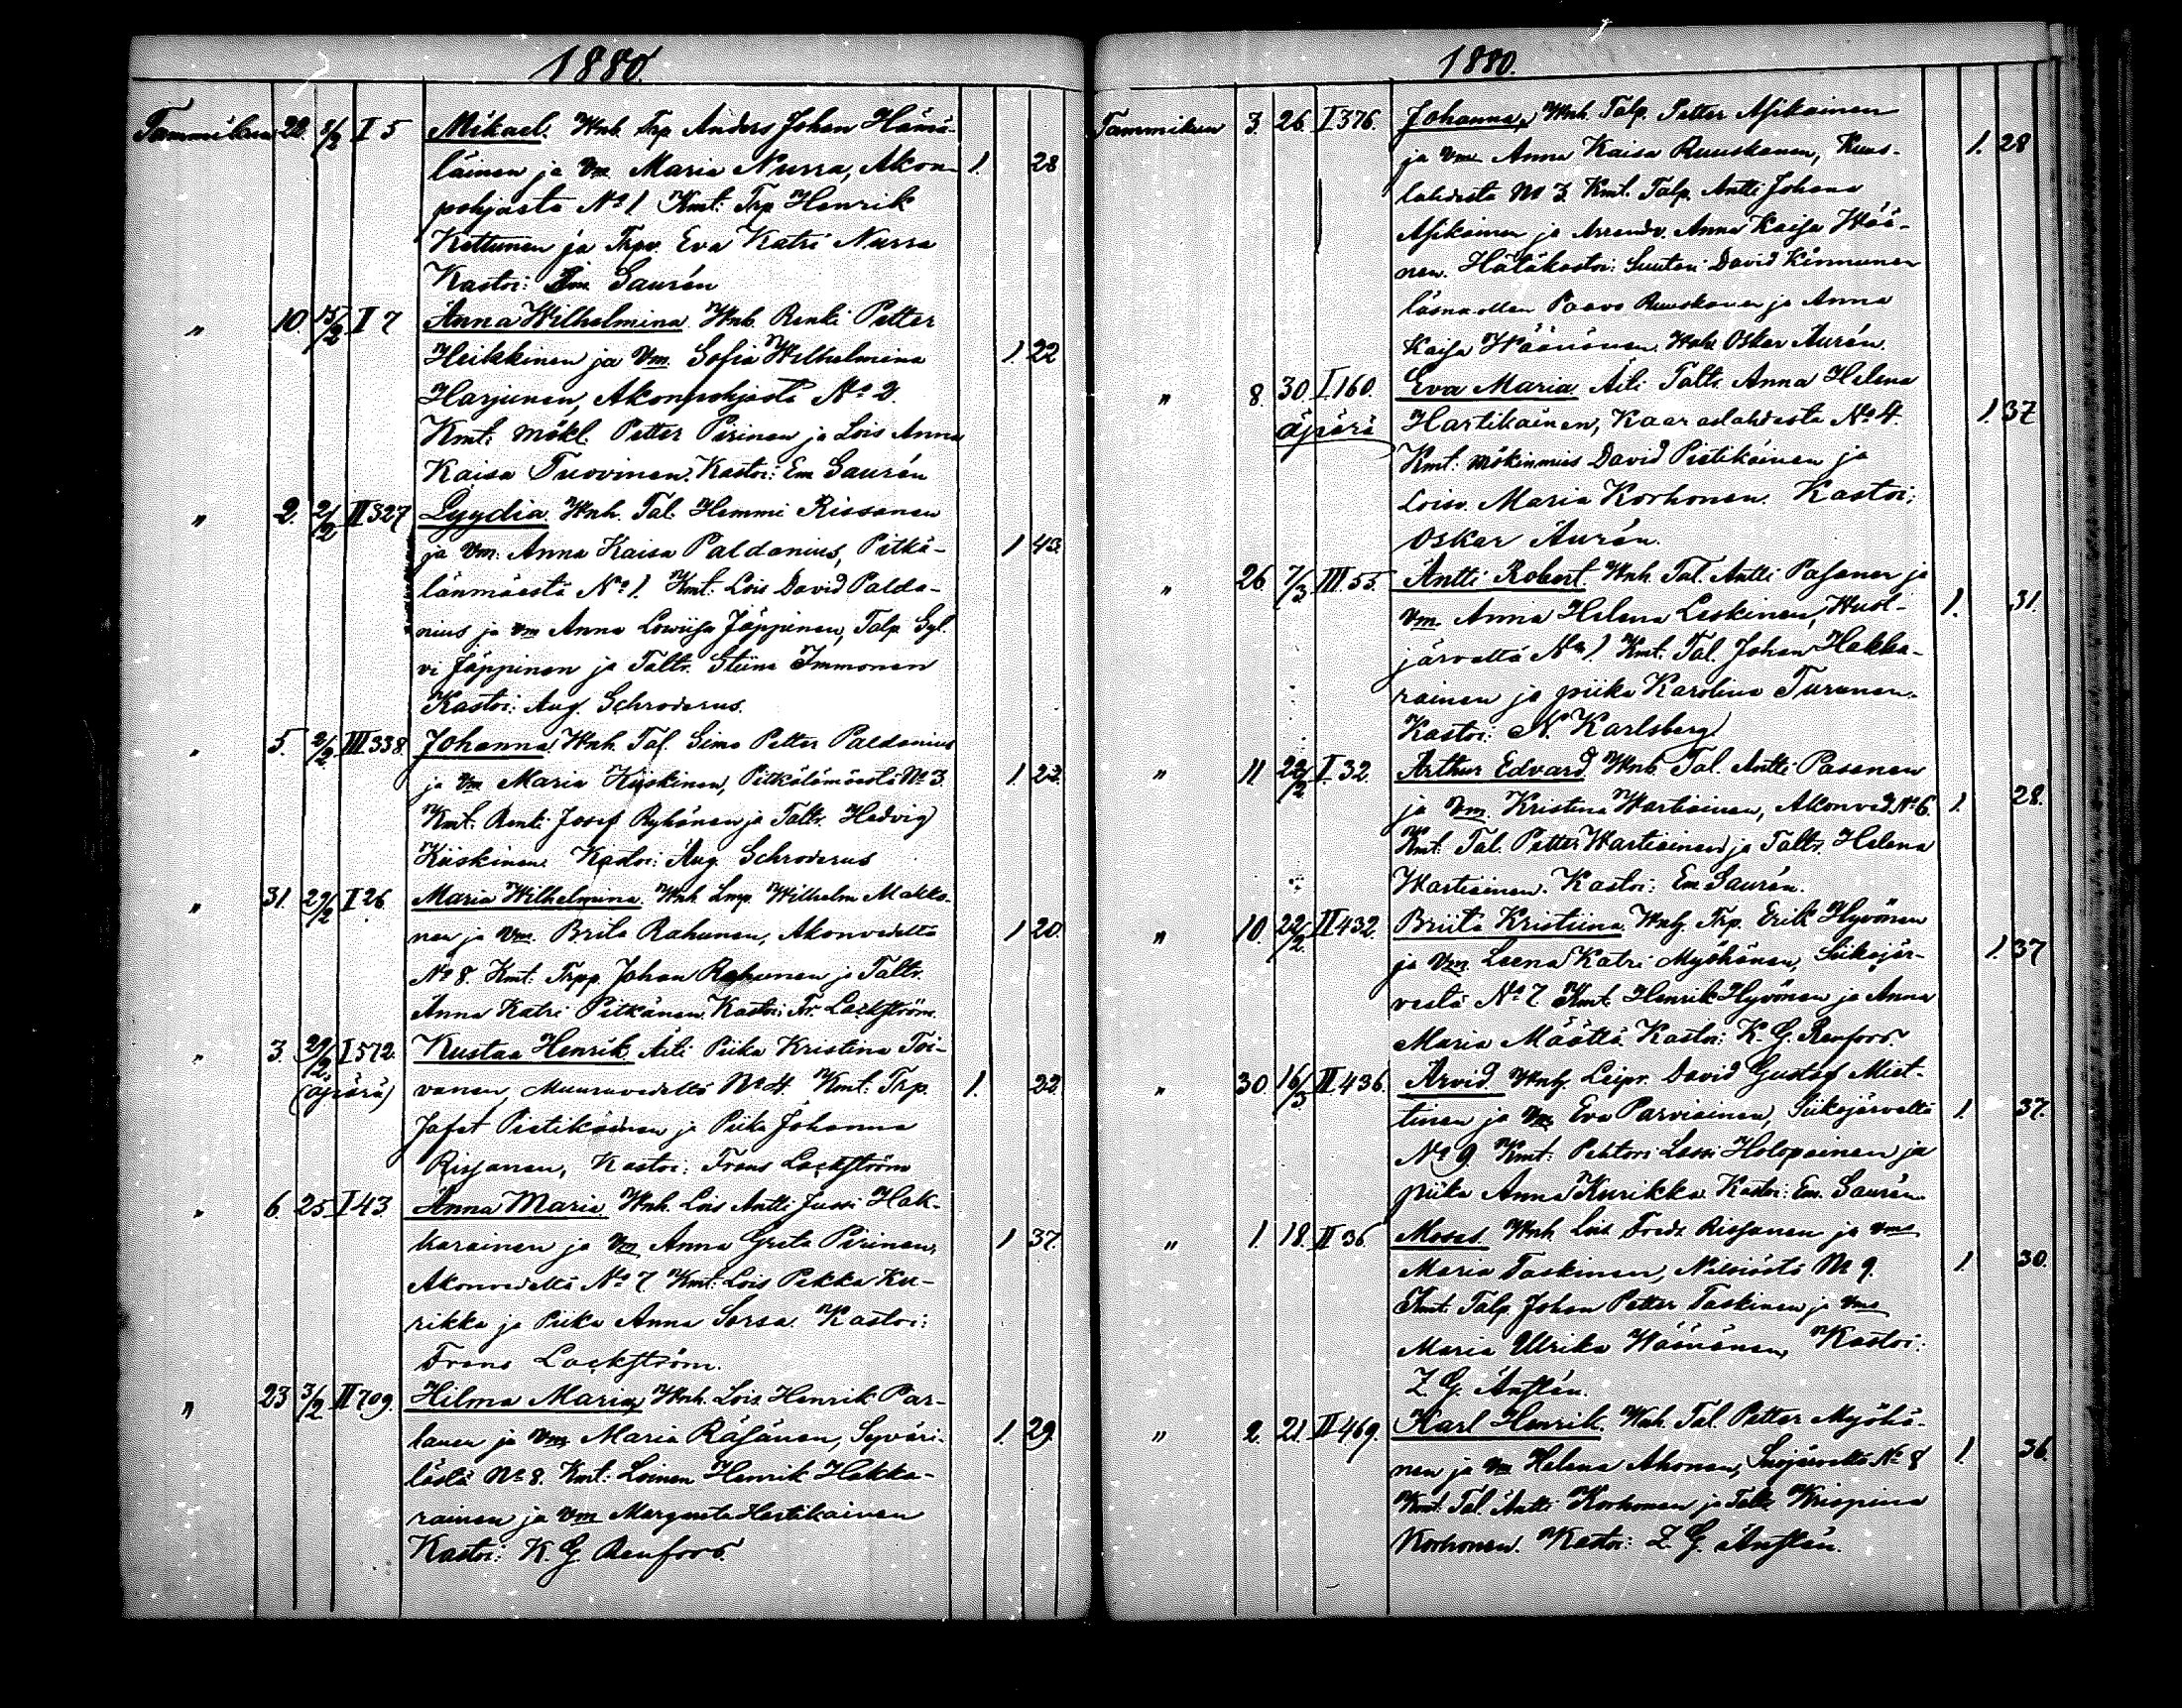 1880.
Tammikuu 22. 8/2 I 5 Mikael. Wnh. Trp Anders Johan Hämä-
läinen ja Vm. Maria Nurra, Akon- 1. 28
pohjasta No 1. Kmt: Trp Henrik
Kettunen ja Trpv. Eva Katri Nurra
Kastoi: Em. Saurén
" 10. 15/2 II 7 Anna Wilhelmina. Wnh. Renki Petter
Heikkinen ja Vm. Sofia Wilhelmina 1. 22
Harjunen, Akonpohjasta No 2.
Kmt: mökl. Petter Pirinen ja Lois Anna
Kaisa Tuovinen. Kastoi: Em Saurén
" 2. 2/2 II 327 Lyydia. Wnh. Tal. Hemmi Rissanen
ja Vm. Anna Kaisa Paldanius, Pitkä- 1 43.
länmäestä No 1. Kmt: Lois David Palda-
nius ja Vm Anna Lowiisa Jäppinen, Talp. Syl-
vi Jäppinen ja Taltr. Stiina Immonen
Kastoi: Aug. Schroderus.
" 5. 2/2 III 338. Johanna. Wnh. Tal. Simo Petter Paldanius
ja Vm Maria Kiiskinen, Pitkälämäestä No 3. 1. 23.
Kmt: Renki Josef Ryhänen ja Taltr. Hedvig
Kiiskinen. Kastoi: Aug. Schroderus
" 31. 29/2 I 26. Maria Wilhelmina. Wnh. Lmp. Wilhelm Makko-
nen ja Vm. Brita Rahunen, Akonvedeltä 1 20.
No 8. Kmt: Trpp. Johan Rahunen ja Taltr.
Anna Katri Pitkänen. Kastoi: Fr. Lackström.
" 3. 29/2 I 572. Kustaa Henrik. Äiti Piika Kristina Toi-
(äpärä) vanen, Muuruvedeltä No 4. Kmt: Trp. 1. 22.
Jafet Pietikäinen ja Piika Johanna
Rissanen, Kastoi: Frans Lackström
" 6. 25 I 43. Anna Maria. Wnh. Lois Antti Jussi Hak-
karainen ja Vm Anna Greta Pirinen, 1 37.
Akonvedeltä No 7. Kmt: Lois Pekka Ku-
rikka ja Piika Anna Sorsa. Kastoi:
Frans Lackström.
" 23 3/2 II 709. Hilma Maria, Wnh. Lois. Henrik Par-
tanen ja Vm. Maria Räsänen, Syväri- 1. 29.
lästä No 8. Kmt: Loinen Henrik Hakka-
rainen ja Vm Margareta Hartikainen
Kastoi: K. G. Renfors.
1880.
Tammikuu 3. 26. I 376. Johanna, Wnh. Talp. Petter Asikainen
ja Vm Anna Kaisa Ruuskanen, Kuus- 1. 28
lahdesta No 3. Kmt. Talp. Antti Johana
Asikainen ja Arrendv. Anna Kaisa Wää-
nen. Hätäkastoi: Suutari David Kinnunen
läsnä ollen Paavo Ruuskanen ja Anna
Kaisa Wäänänen. Wahv. Oskar Aurén.
" 8. 30. I 160. Eva Maria. Äiti Taltr. Anna Helena
äpärä Hartikainen, Kaaraslahdesta No 4. 1. 37
Kmt: mökinmies David Pietikäinen ja
Loisv. Maria Korhonen. Kastoi:
Oskar Aurén.
" 26 7/3 III 55. Antti Robert. Wnh. Tal. Antti Pasanen ja
Vm. Anna Helena Leskinen, Wuot- 1. 31.
järveltä No 1. Kmt. Tal. Johan Hakka-
rainen ja piika Karolina Turunen.
Kastoi: N. Karlsberg.
" 11 22/2 I 32. Arthur Edvard. Wnh. Tal. Antti Pasanen
ja Vm. Kristina Wartiainen, Akonved. No 6. 1. 28.
Kmt: Tal. Petter Wartiainen ja Taltr. Helena
Wartiainen. Kastoi: Em Saurén.
" 10. 22/2. II 432. Briita Kristiina. Wnh. Trp. Erik Hyvönen
ja Vm. Leena Katri Myöhänen, Siikajär- 1. 37
vestä No 7. Kmt. Henrik Hyvönen ja Anna
Maria Määttä. Kastoi: K. G. Renfors.
" 30. 16/3 II 436. Arvid. Wnh. Leipr. David Gustaf Miet-
tinen ja Vm Eva Parviainen, Siikajärveltä 1. 37.
No 9. Kmt: Pehtori Lassi Holopainen ja
piika Anna Kurikka. Kastoi: Em. Saurén.
" 1. 18. II 36. Moses. Wnh Lois Fredr. Rissanen ja Vms
Maria Taskinen, Nilsiästä No 9. 1. 30.
Kmt. Talp. Johan Petter Taskinen ja Vms
Maria Ulrika Wäänänen, Kastoi:
Z. G. Anstén.
" 2. 21. II 469. Karl Henrik. Wnh. Tal. Petter Myöhä-
nen ja Vm Helena Ahonen, Suojärveltä No 8 1. 36.
Kmt: Tal. Antti Korhonen ja Taltr. Krispina
Korhonen. Kastoi: Z. G. Anstén.